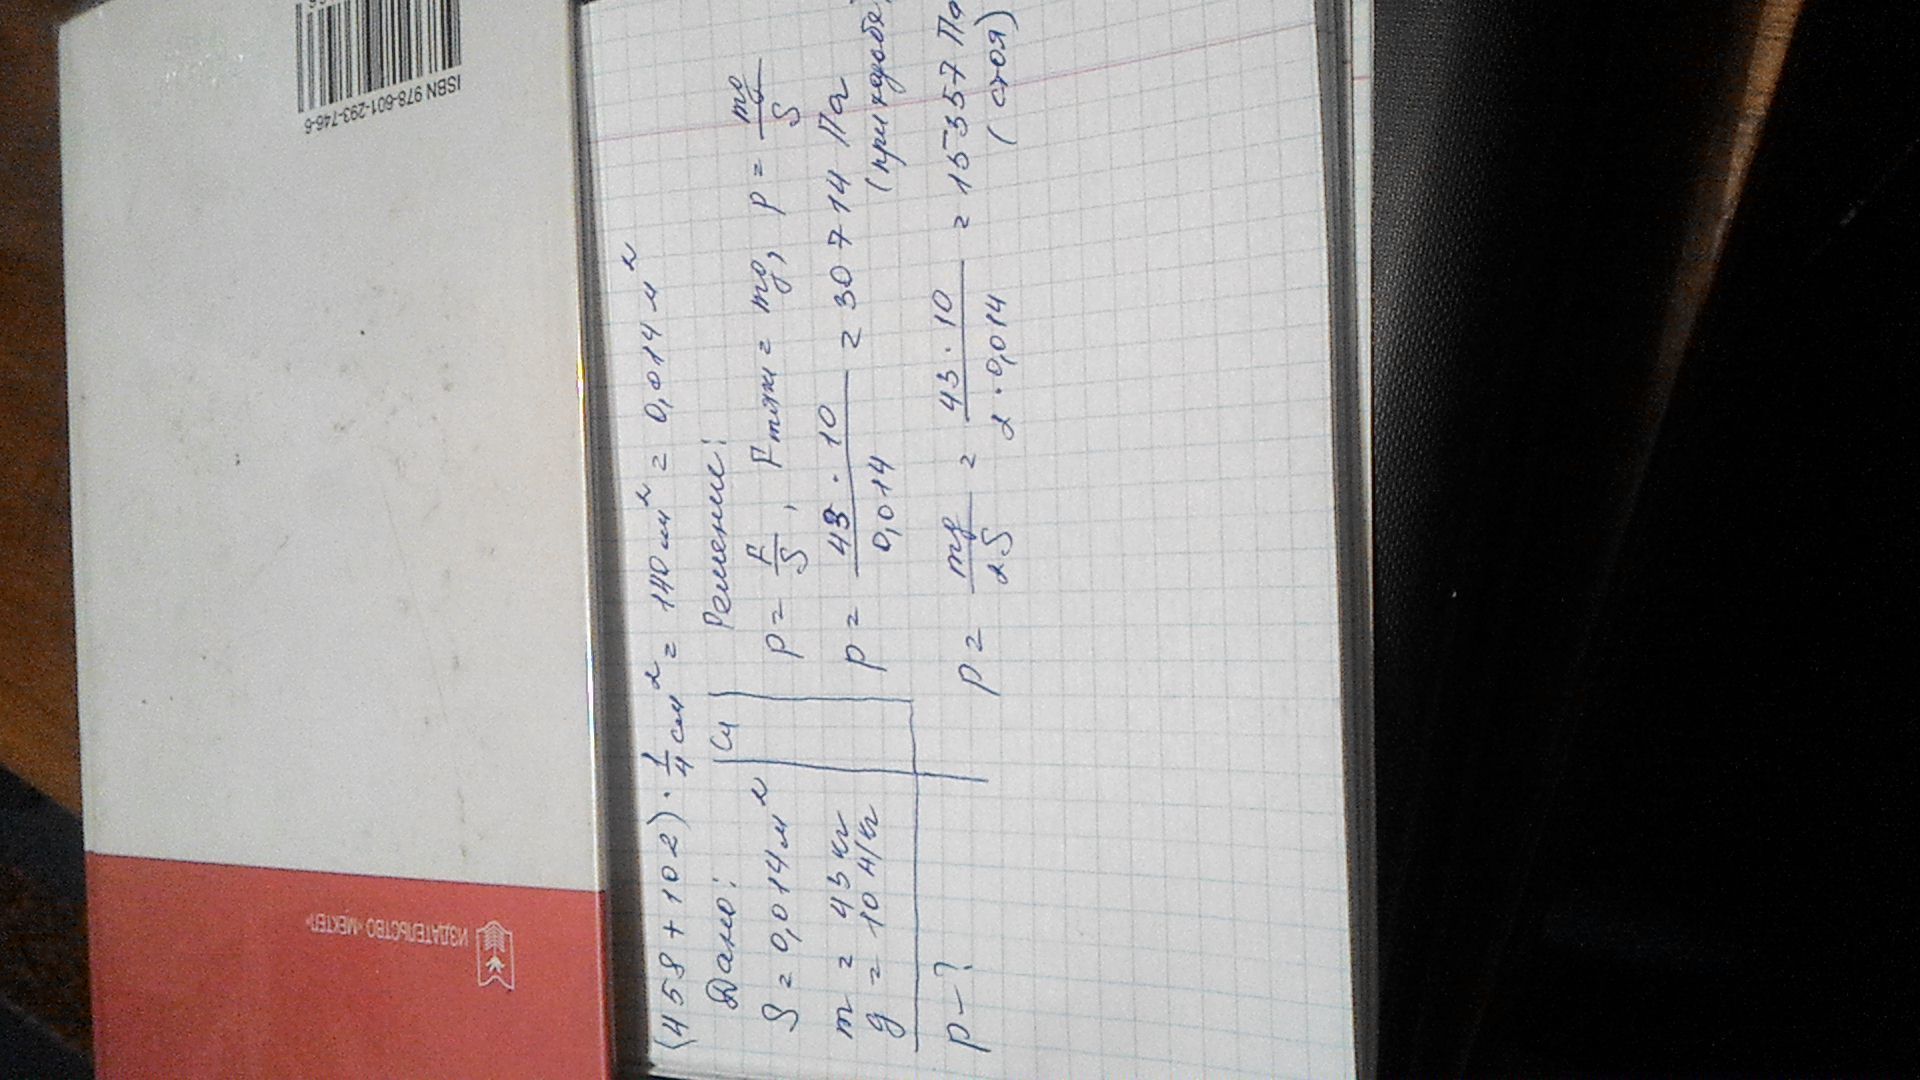 ISBN 978-601-293-746-6
ИЗДАТЕЛЬСТВО «МЕКТЕП»
(458 + 102) · 1/4 см² = 140 см² = 0,014 м²
Дано: СИ Решение:
S = 0,014 м²
m = 43 кг
g = 10 Н/кг
P - ?
P = F/S, Fтяж = mg, P = mg/S
P = 43 · 10 / 0,014 = 30714 Па
(при ходьбе)
P = mg/2S = 43 · 10 / 2 · 0,014 = 15357 Па
(стоя)